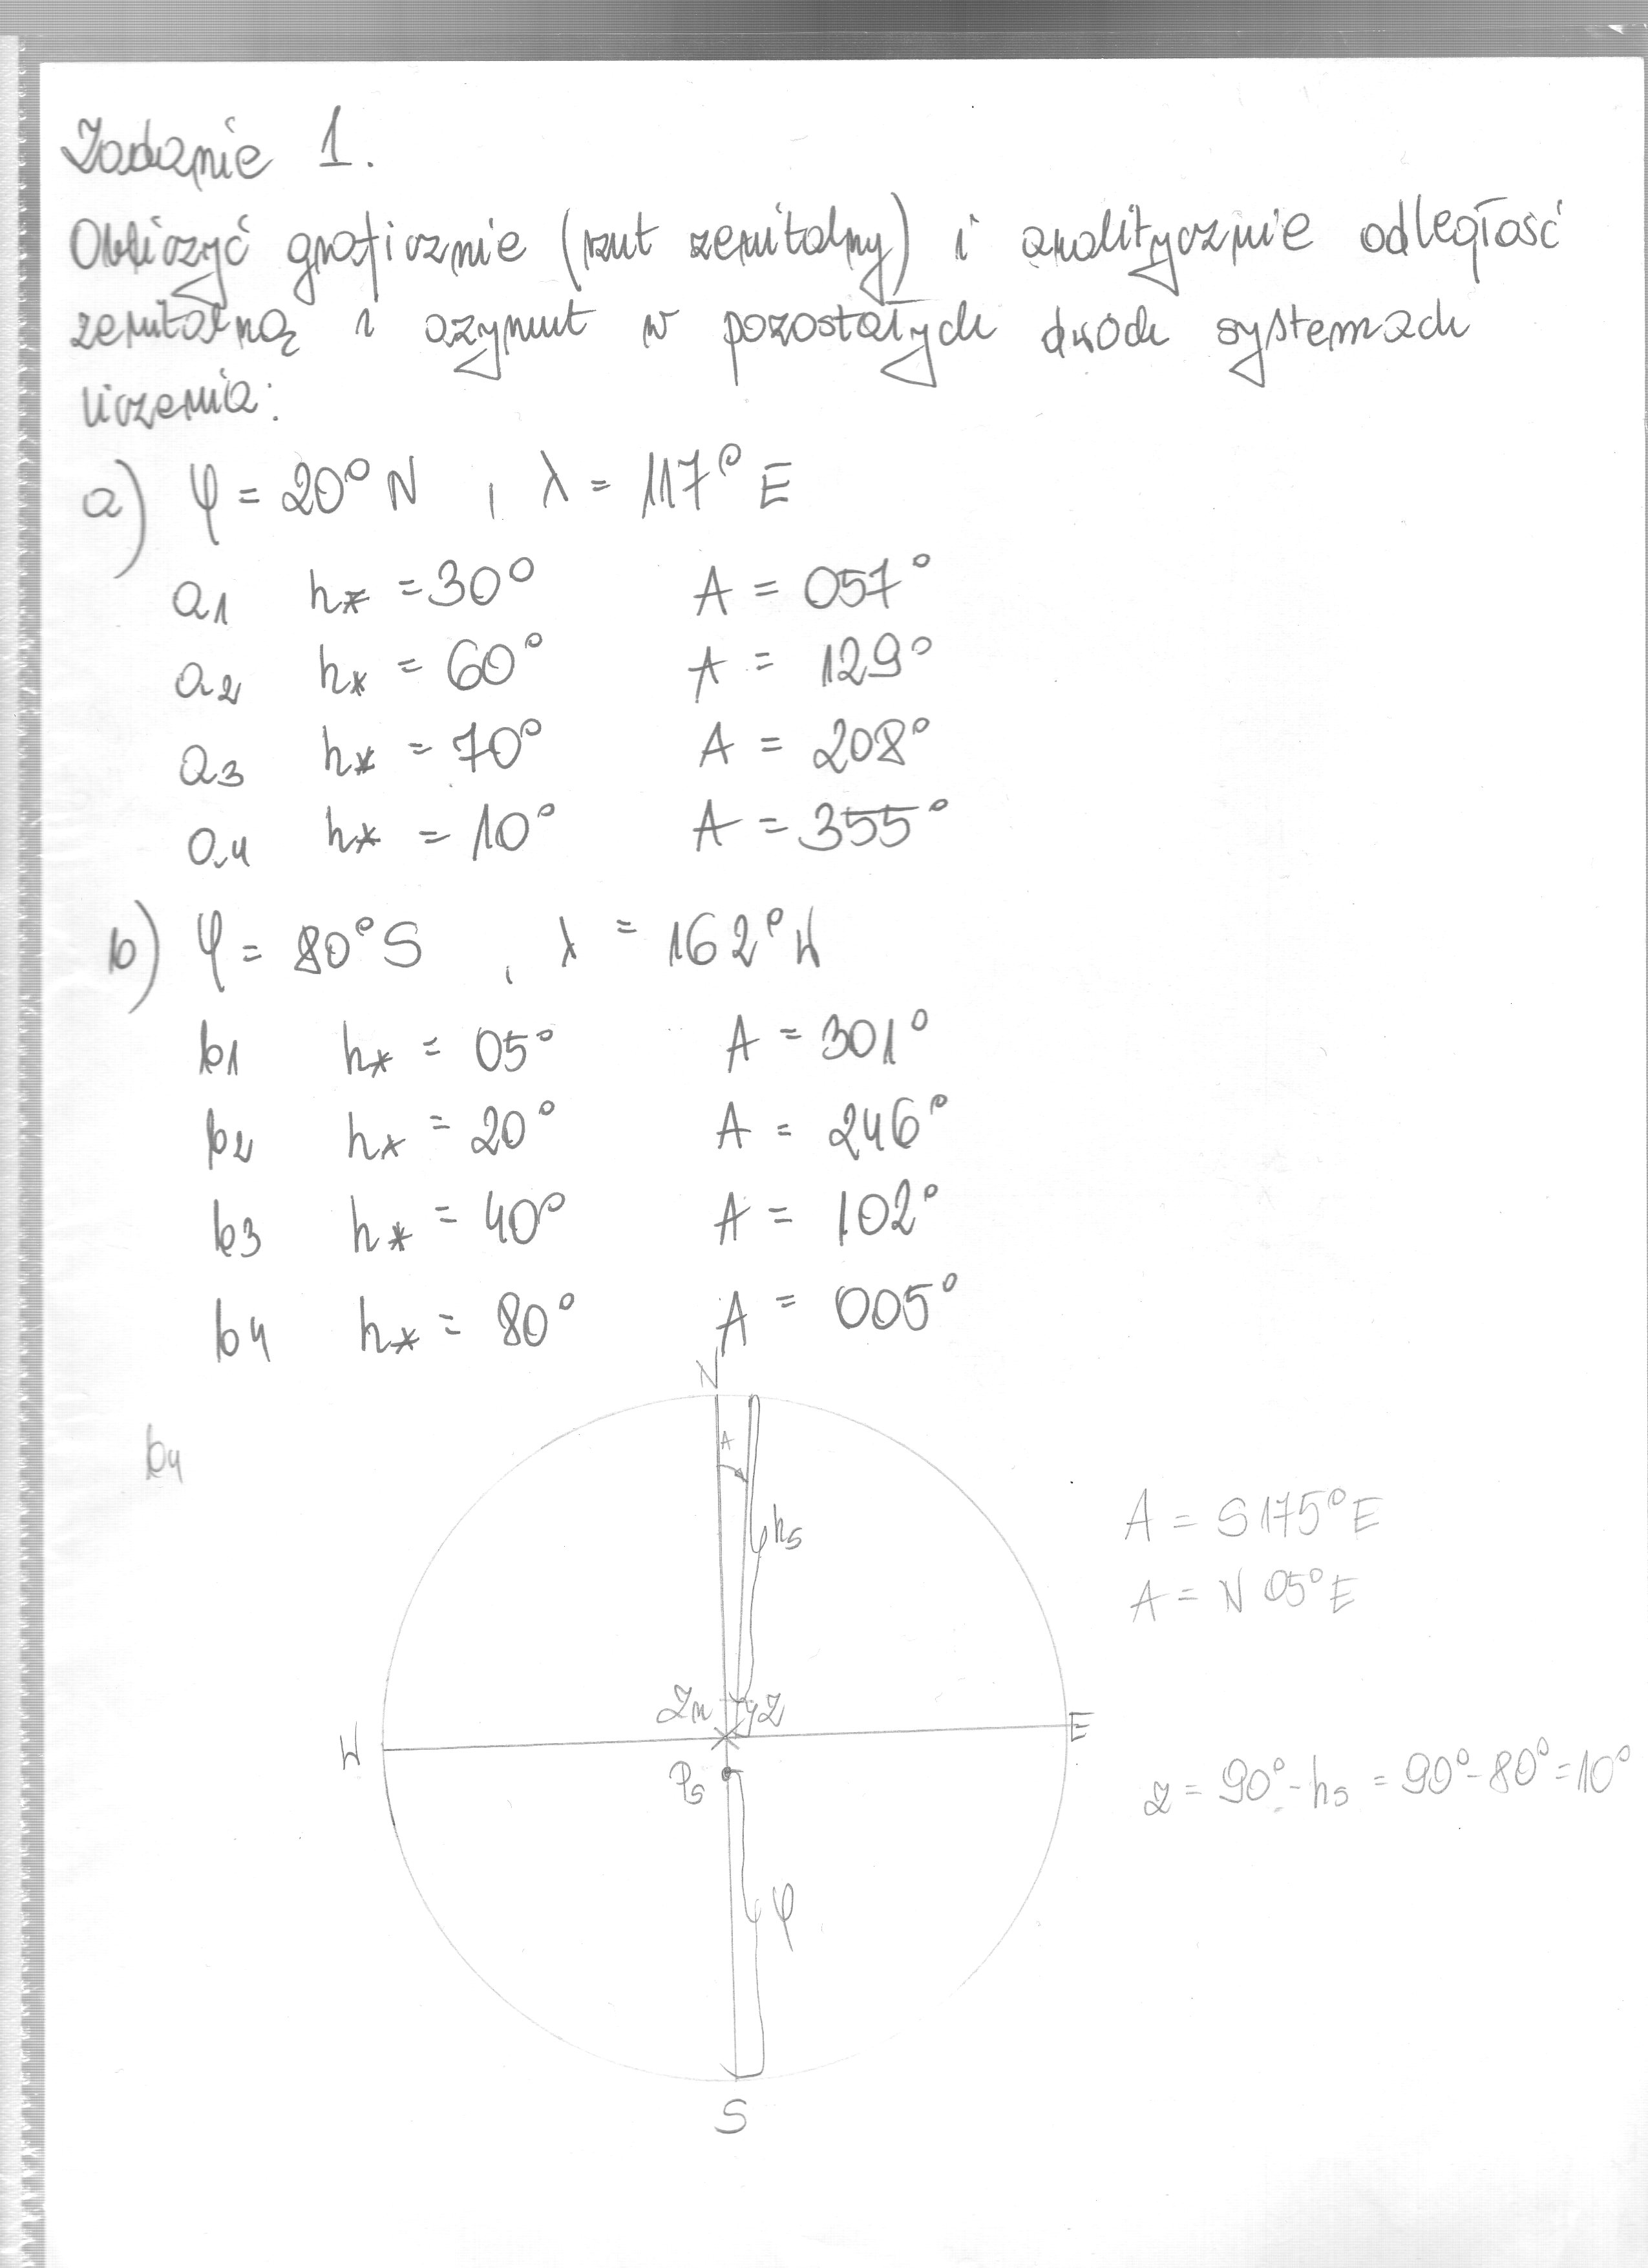 Zadanie 1.
Obliczyć graficznie (rzut zenitalny) i analitycznie odległość
zenitalną i azymut w pozostałych dwóch systemach
liczenia:
a) φ = 20° N , λ = 117° E
a1 h* = 30° A = 057°
a2 h* = 60° A = 129°
a3 h* = 70° A = 208°
a4 h* = 10° A = 355°
b) φ = 80° S , λ = 162° W
b1 h* = 05° A = 301°
b2 h* = 20° A = 246°
b3 h* = 40° A = 102°
b4 h* = 80° A = 005°
N
b4
A
hs
A = S 175° E
A = N 05° E
Zn
z
W
E
Ps
z = 90° - hs = 90° - 80° = 10°
φ
S